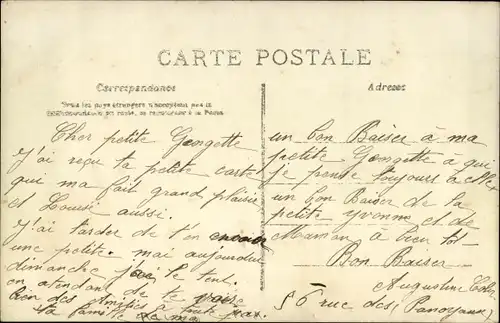 CARTE POSTALE
Correspondance
Tous les pays étrangers n'acceptent pas la
Correspondance au recto, se renseigner à la Poste
Adresse
Cher petite Gongette
J'ai reçu ta petite carte
qui ma fait grand plaisir
et Louise aussi.
J'ai tarder de t'en
une petite. mai aujourdui
dimanche jai le tent.
en atendant de te voire
bien des amitié a toute
ta famille de ma
un bon Baiser à ma
petite Gongette a qui
je pense toujours a elle
un bon Baiser de la
petite yvonne et de
Maman à bien tot
Bon Baiser
Augustine
56 rue des Panoyaux